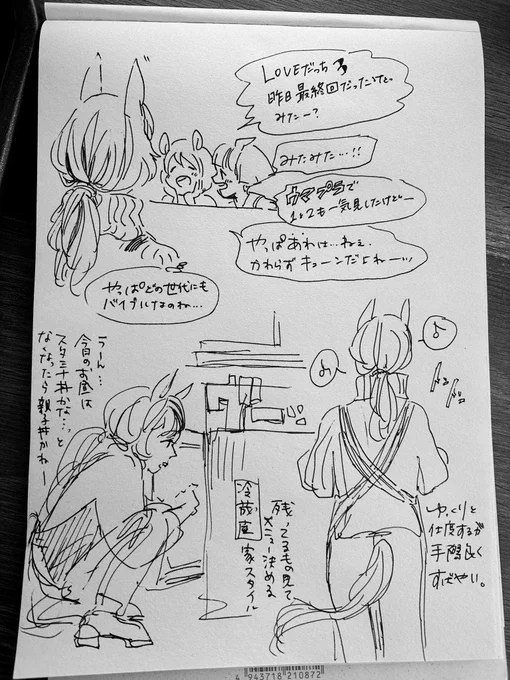 LOVEだっち
昨日最終回だったけど
みたー？
みたみた…!!
ウマプラで
1と2も一気見したけどー
やっぱあわけ…ねぇ
かわらずキューンだよねー…
やっぱどの世代にも
バイブルなのね…
うーん…
今日のお昼は
スタミナ丼かな…っと
なくなったら親子丼かねー
残ってるもの見て
メニュー決める
冷蔵庫家スタイル
ゆっくりと
仕度するが
手際良く
すばやい。
4 943718 210872